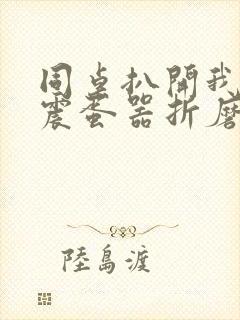 同桌扒開我
震蛋器折磨
陸島渡